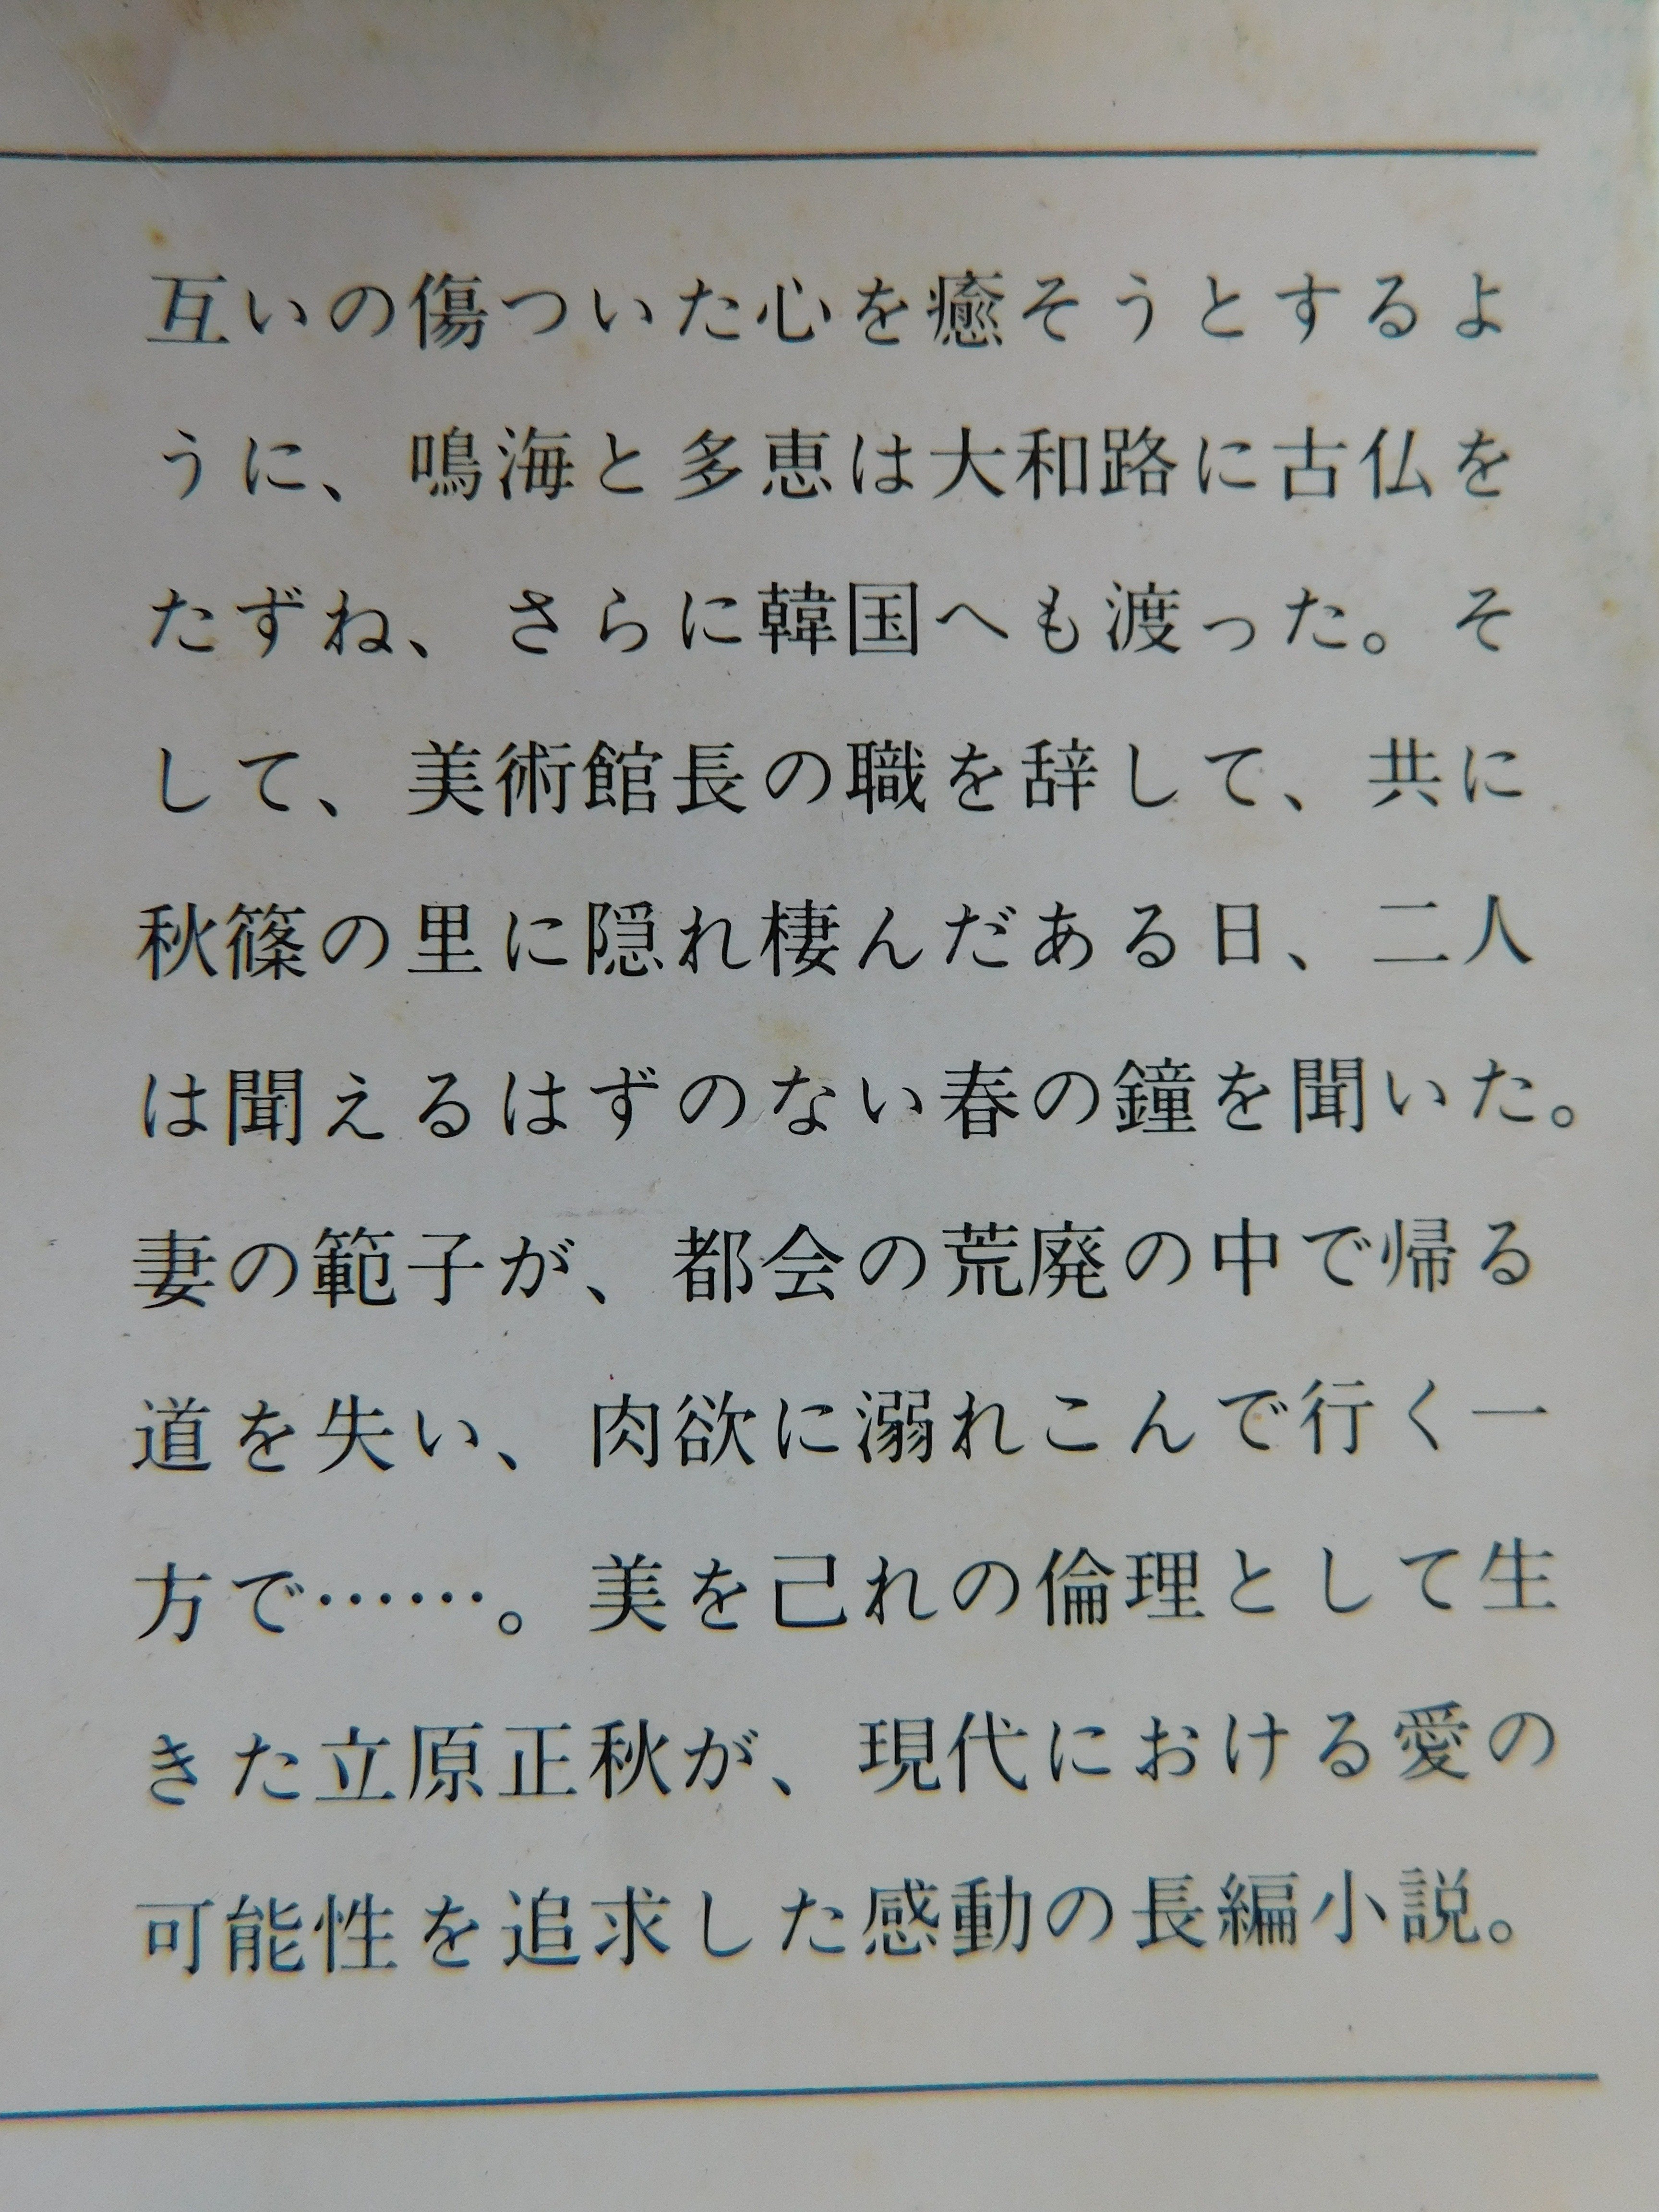 互いの傷ついた心を癒そうとするよ
うに、鳴海と多恵は大和路に古仏を
たずね、さらに韓国へも渡った。そ
して、美術館長の職を辞して、共に
秋篠の里に隠れ棲んだある日、二人
は聞えるはずのない春の鐘を聞いた。
妻の範子が、都会の荒廃の中で帰る
道を失い、肉欲に溺れこんで行く一
方で……。美を己れの倫理として生
きた立原正秋が、現代における愛の
可能性を追求した感動の長編小説。